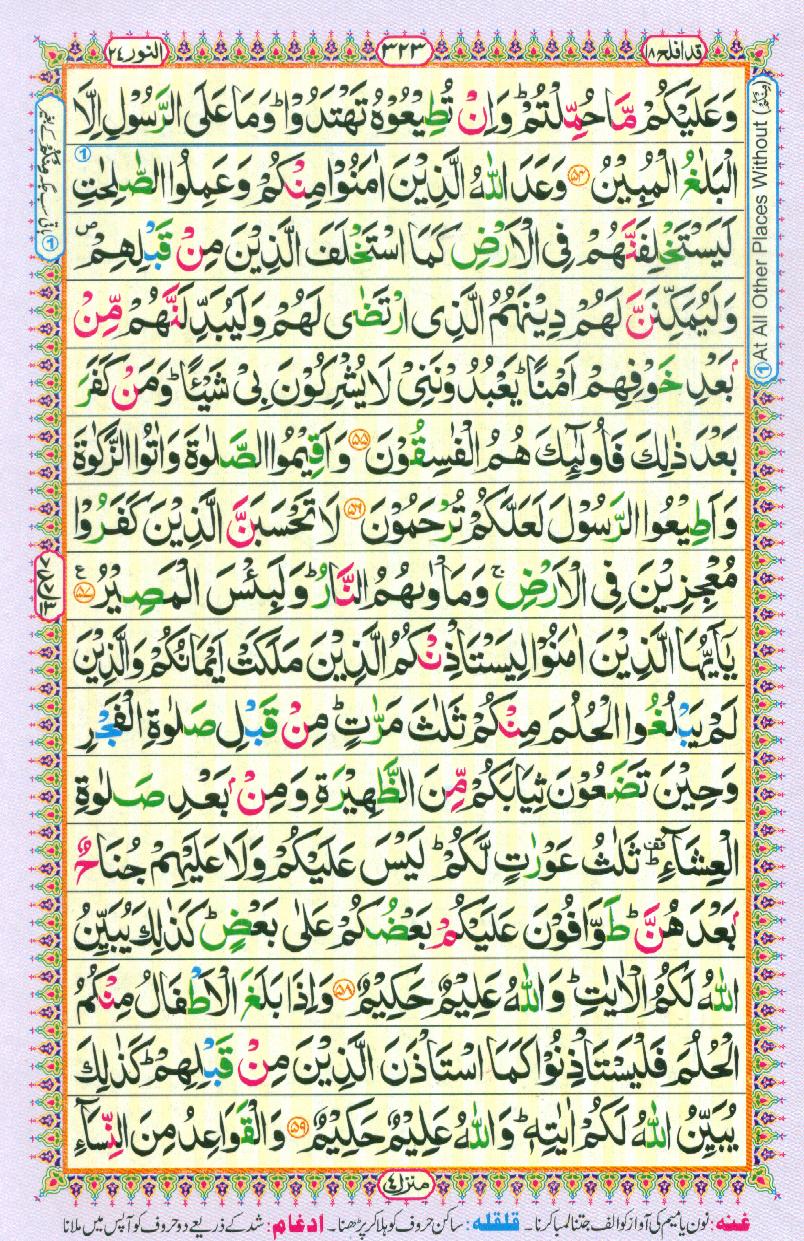 قد افلح ١٨
٣٢٣
النور ٢٤
وَعَلَيۡكُمۡ مَّا حُمِّلۡتُمۡ‌ؕ وَاِنۡ تُطِيۡعُوۡهُ تَهۡتَدُوۡا‌ؕ وَمَا عَلَى الرَّسُوۡلِ اِلَّا
الۡبَلٰغُ الۡمُبِيۡنُ ﴿۵۴﴾ وَعَدَ اللّٰهُ الَّذِيۡنَ اٰمَنُوۡا مِنۡكُمۡ وَعَمِلُوا الصّٰلِحٰتِ
لَيَسۡتَخۡلِفَنَّهُمۡ فِى الۡاَرۡضِ كَمَا اسۡتَخۡلَفَ الَّذِيۡنَ مِنۡ قَبۡلِهِمۡ ۖ
وَلَيُمَكِّنَنَّ لَهُمۡ دِيۡنَهُمُ الَّذِى ارۡتَضٰى لَهُمۡ وَلَيُبَدِّلَنَّهُمۡ مِّنۡۢ
بَعۡدِ خَوۡفِهِمۡ اَمۡنًا‌ ؕ يَعۡبُدُوۡنَنِىۡ لَا يُشۡرِكُوۡنَ بِىۡ شَيۡـًٔــا‌ ؕ وَمَنۡ كَفَرَ
بَعۡدَ ذٰلِكَ فَاُولٰٓٮِٕكَ هُمُ الۡفٰسِقُوۡنَ ﴿۵۵﴾ وَاَقِيۡمُوا الصَّلٰوةَ وَاٰتُوا الزَّكٰوةَ
وَاَطِيۡـعُوا الرَّسُوۡلَ لَعَلَّكُمۡ تُرۡحَمُوۡنَ ﴿۵۶﴾ لَا تَحۡسَبَنَّ الَّذِيۡنَ كَفَرُوۡا
مُعۡجِزِيۡنَ فِى الۡاَرۡضِ‌ۚ وَمَاۡوٰٮهُمُ النَّارُ‌ؕ وَلَبِئۡسَ الۡمَصِيۡرُ ﴿۵۷﴾ ع
يٰۤـاَيُّهَا الَّذِيۡنَ اٰمَنُوۡا لِيَسۡتَاۡذِنۡكُمُ الَّذِيۡنَ مَلَكَتۡ اَيۡمَانُكُمۡ وَالَّذِيۡنَ
لَمۡ يَـبۡلُغُوا الۡحُـلُمَ مِنۡكُمۡ ثَلٰثَ مَرّٰتٍ‌ؕ مِنۡ قَبۡلِ صَلٰوةِ الۡفَجۡرِ
وَحِيۡنَ تَضَعُوۡنَ ثِيَابَكُمۡ مِّنَ الظَّهِيۡرَةِ وَمِنۡۢ بَعۡدِ صَلٰوةِ
الۡعِشَآءِ‌ ؕ قف ثَلٰثُ عَوۡرٰتٍ لَّـكُمۡ‌ ؕ لَـيۡسَ عَلَيۡكُمۡ وَ لَا عَلَيۡهِمۡ جُنَاحٌۢ
بَعۡدَهُنَّ‌ ؕ طَوّٰفُوۡنَ عَلَيۡكُمۡ بَعۡضُكُمۡ عَلٰى بَعۡضٍ‌ ؕ كَذٰلِكَ يُبَيِّنُ
اللّٰهُ لَـكُمُ الۡاٰيٰتِ‌ ؕ وَاللّٰهُ عَلِيۡمٌ حَكِيۡمٌ ﴿۵۸﴾ وَاِذَا بَلَغَ الۡاَطۡفَالُ مِنۡكُمُ
الۡحُـلُمَ فَلۡيَسۡتَاۡذِنُوۡا كَمَا اسۡتَـاۡذَنَ الَّذِيۡنَ مِنۡ قَبۡلِهِمۡ‌ؕ كَذٰلِكَ
يُبَيِّنُ اللّٰهُ لَـكُمۡ اٰيٰتِهٖ‌ؕ وَاللّٰهُ عَلِيۡمٌ حَكِيۡمٌ ﴿۵۹﴾ وَالۡـقَوَاعِدُ مِنَ النِّسَآءِ
① At All Other Places Without
منزل ٤
غنه: نون یا میم کی آواز کو الف جتنا لمبا کرنا۔ قلقله: ساکن حروف کو ہلا کر پڑھنا۔ ادغام: شد کے ذریعے دو حروف کو آپس میں ملانا